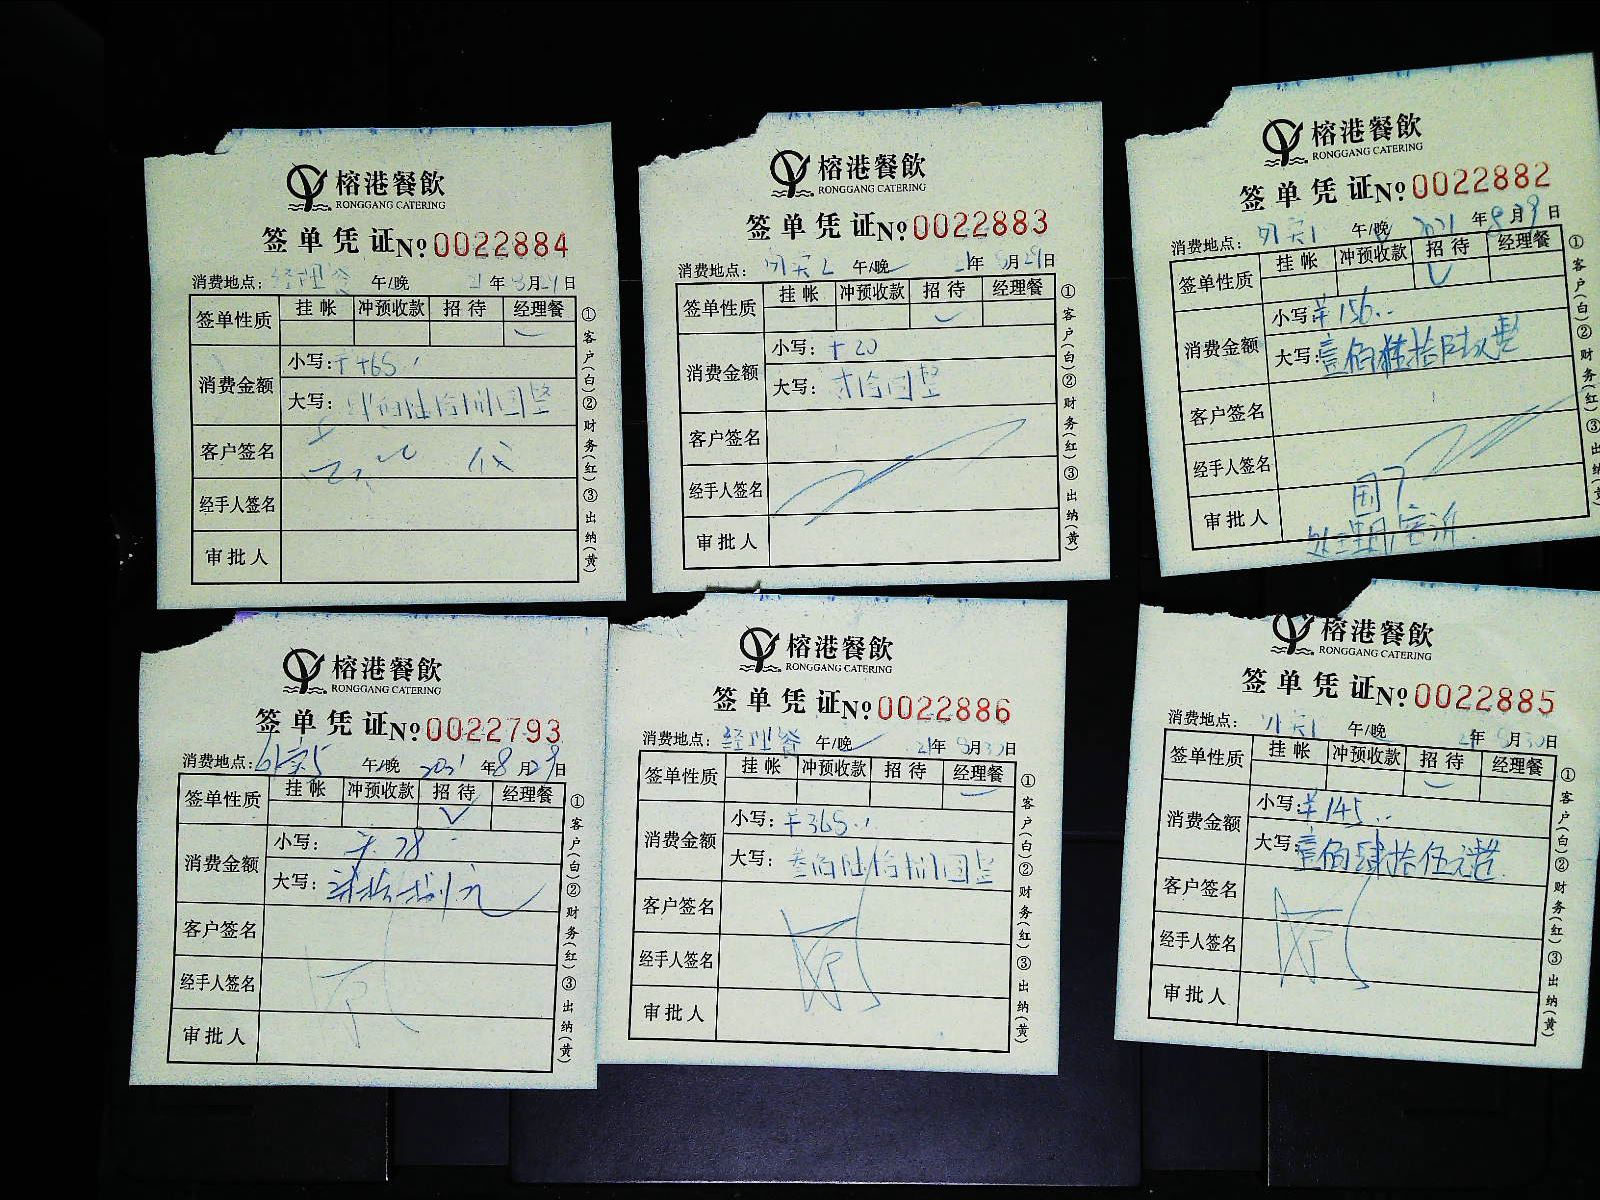 榕港餐飲
RONGGANG CATERING
签单凭证№0022884
消费地点：经理餐 午/晚 21年8月29日
签单性质 挂帐 冲预收款 招待 经理餐
消费金额
小写：
大写：
客户签名
经手人签名
审批人
①客户(白)②财务(红)③出纳(黄)
榕港餐飲
RONGGANG CATERING
签单凭证№0022883
消费地点： 午/晚 21年8月29日
签单性质 挂帐 冲预收款 招待 经理餐
消费金额
小写：¥20
大写：贰拾圆整
客户签名
经手人签名
审批人
①客户(白)②财务(红)③出纳(黄)
榕港餐飲
RONGGANG CATERING
签单凭证№0022882
消费地点： 午/晚 2021年8月29日
签单性质 挂帐 冲预收款 招待 经理餐
消费金额
小写：¥156
大写：壹佰伍拾陆元整
客户签名
经手人签名
审批人
①客户(白)②财务(红)③出纳(黄)
榕港餐飲
RONGGANG CATERING
签单凭证№0022793
消费地点： 午/晚 2021年8月29日
签单性质 挂帐 冲预收款 招待 经理餐
消费金额
小写：¥28
大写：贰拾捌元
客户签名
经手人签名
审批人
①客户(白)②财务(红)③出纳(黄)
榕港餐飲
RONGGANG CATERING
签单凭证№0022886
消费地点：经理餐 午/晚 21年8月30日
签单性质 挂帐 冲预收款 招待 经理餐
消费金额
小写：¥365
大写：叁佰陆拾伍圆整
客户签名
经手人签名
审批人
①客户(白)②财务(红)③出纳(黄)
榕港餐飲
RONGGANG CATERING
签单凭证№0022885
消费地点： 午/晚 21年8月30日
签单性质 挂帐 冲预收款 招待 经理餐
消费金额
小写：¥145
大写：壹佰肆拾伍元整
客户签名
经手人签名
审批人
①客户(白)②财务(红)③出纳(黄)